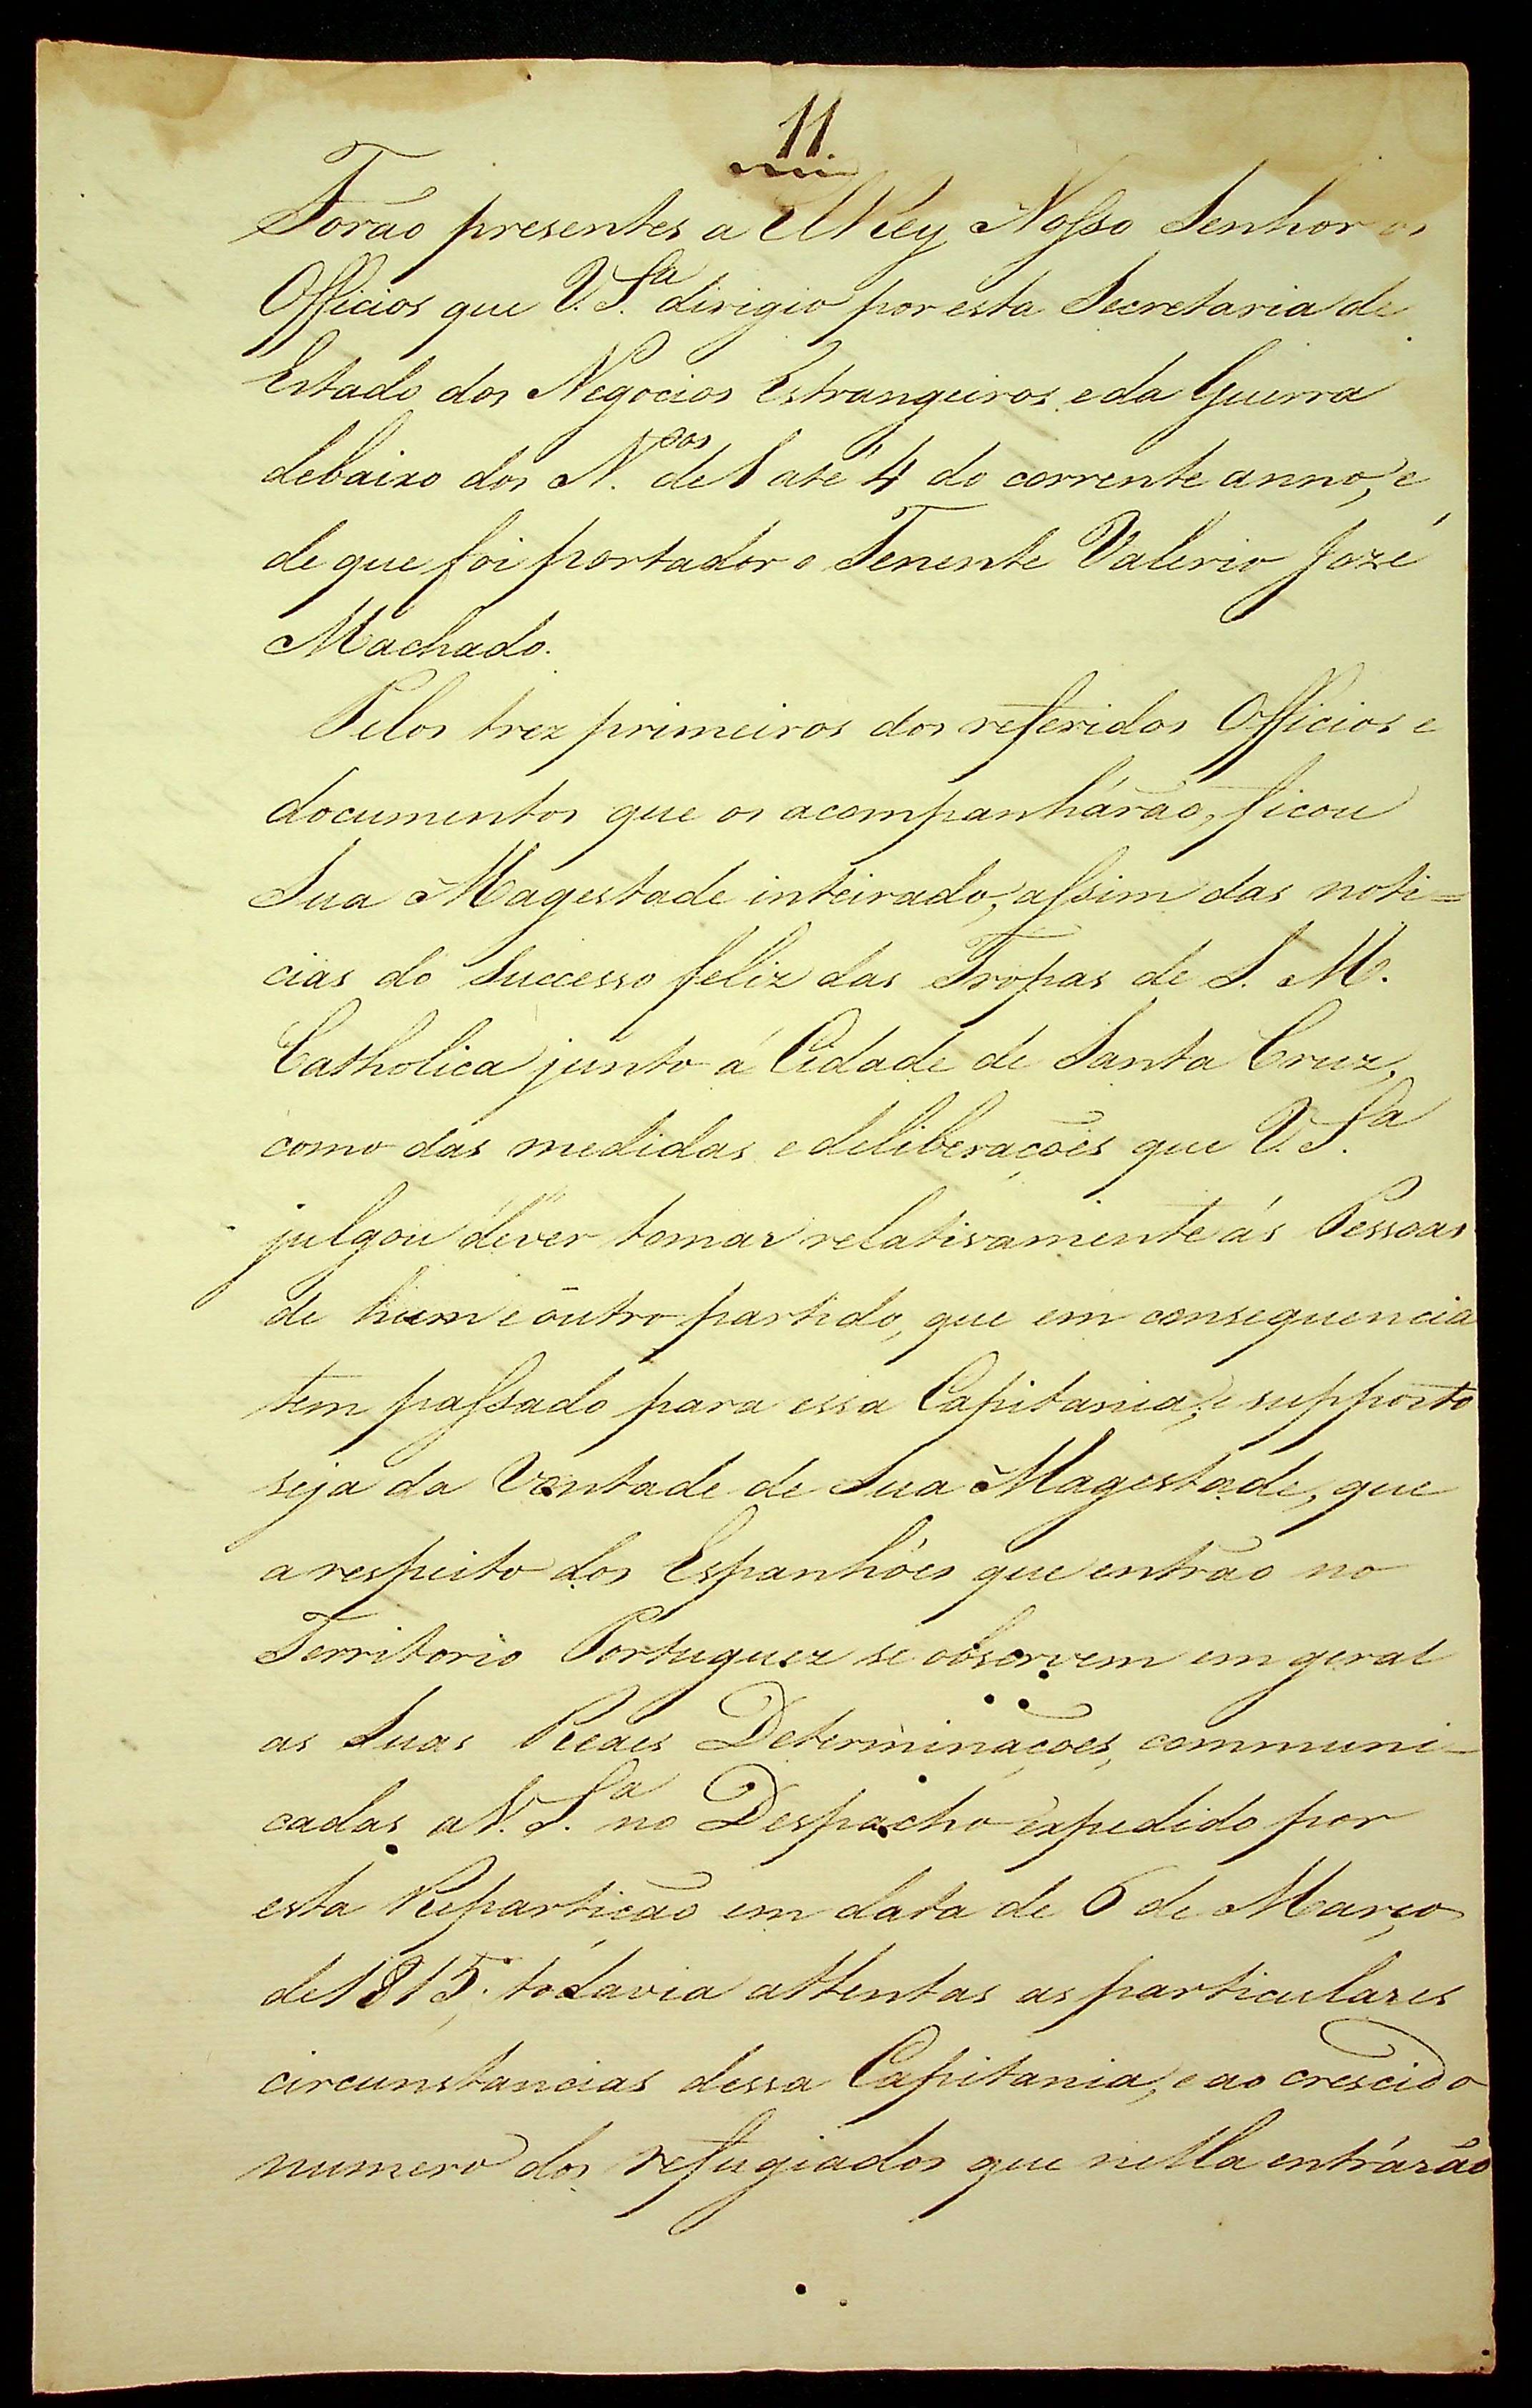 11
Forão presentes a ElRey Nosso Senhor os
Officios que V. S.ª dirigio por esta Secretaria de
Estado dos Negocios Estrangeiros e da Guerra
debaixo dos N.ºˢ de 1 até 4 do corrente anno, e
de que foi portador o Tenente Valerio Jozé
Machado.
Pelos trez primeiros dos referidos Officios e
documentos que os acompanhárão, ficou
Sua Magestade inteirado, assim das noti=
cias do Successo feliz das Tropas de S. M.
Catholica junto á Cidade de Santa Cruz,
como das medidas e deliberações que V. S.ª
julgou dever tomar relativamente ás Pessoas
de hum e outro partido, que em consequencia
tem passado para essa Capitania, e supposto
seja da Vontade de Sua Magestade, que
a respeito dos Espanhóes que entrão no
Territorio Portuguez se observem em geral
as Suas Reaes Determinações, communi-
cadas a V. S.ª no Despacho expedido por
esta Repartição em data de 6 de Março
de 1815; todavia attentas as particulares
circunstancias dessa Capitania, e ao crescido
numero dos refugiados que nella entrárão